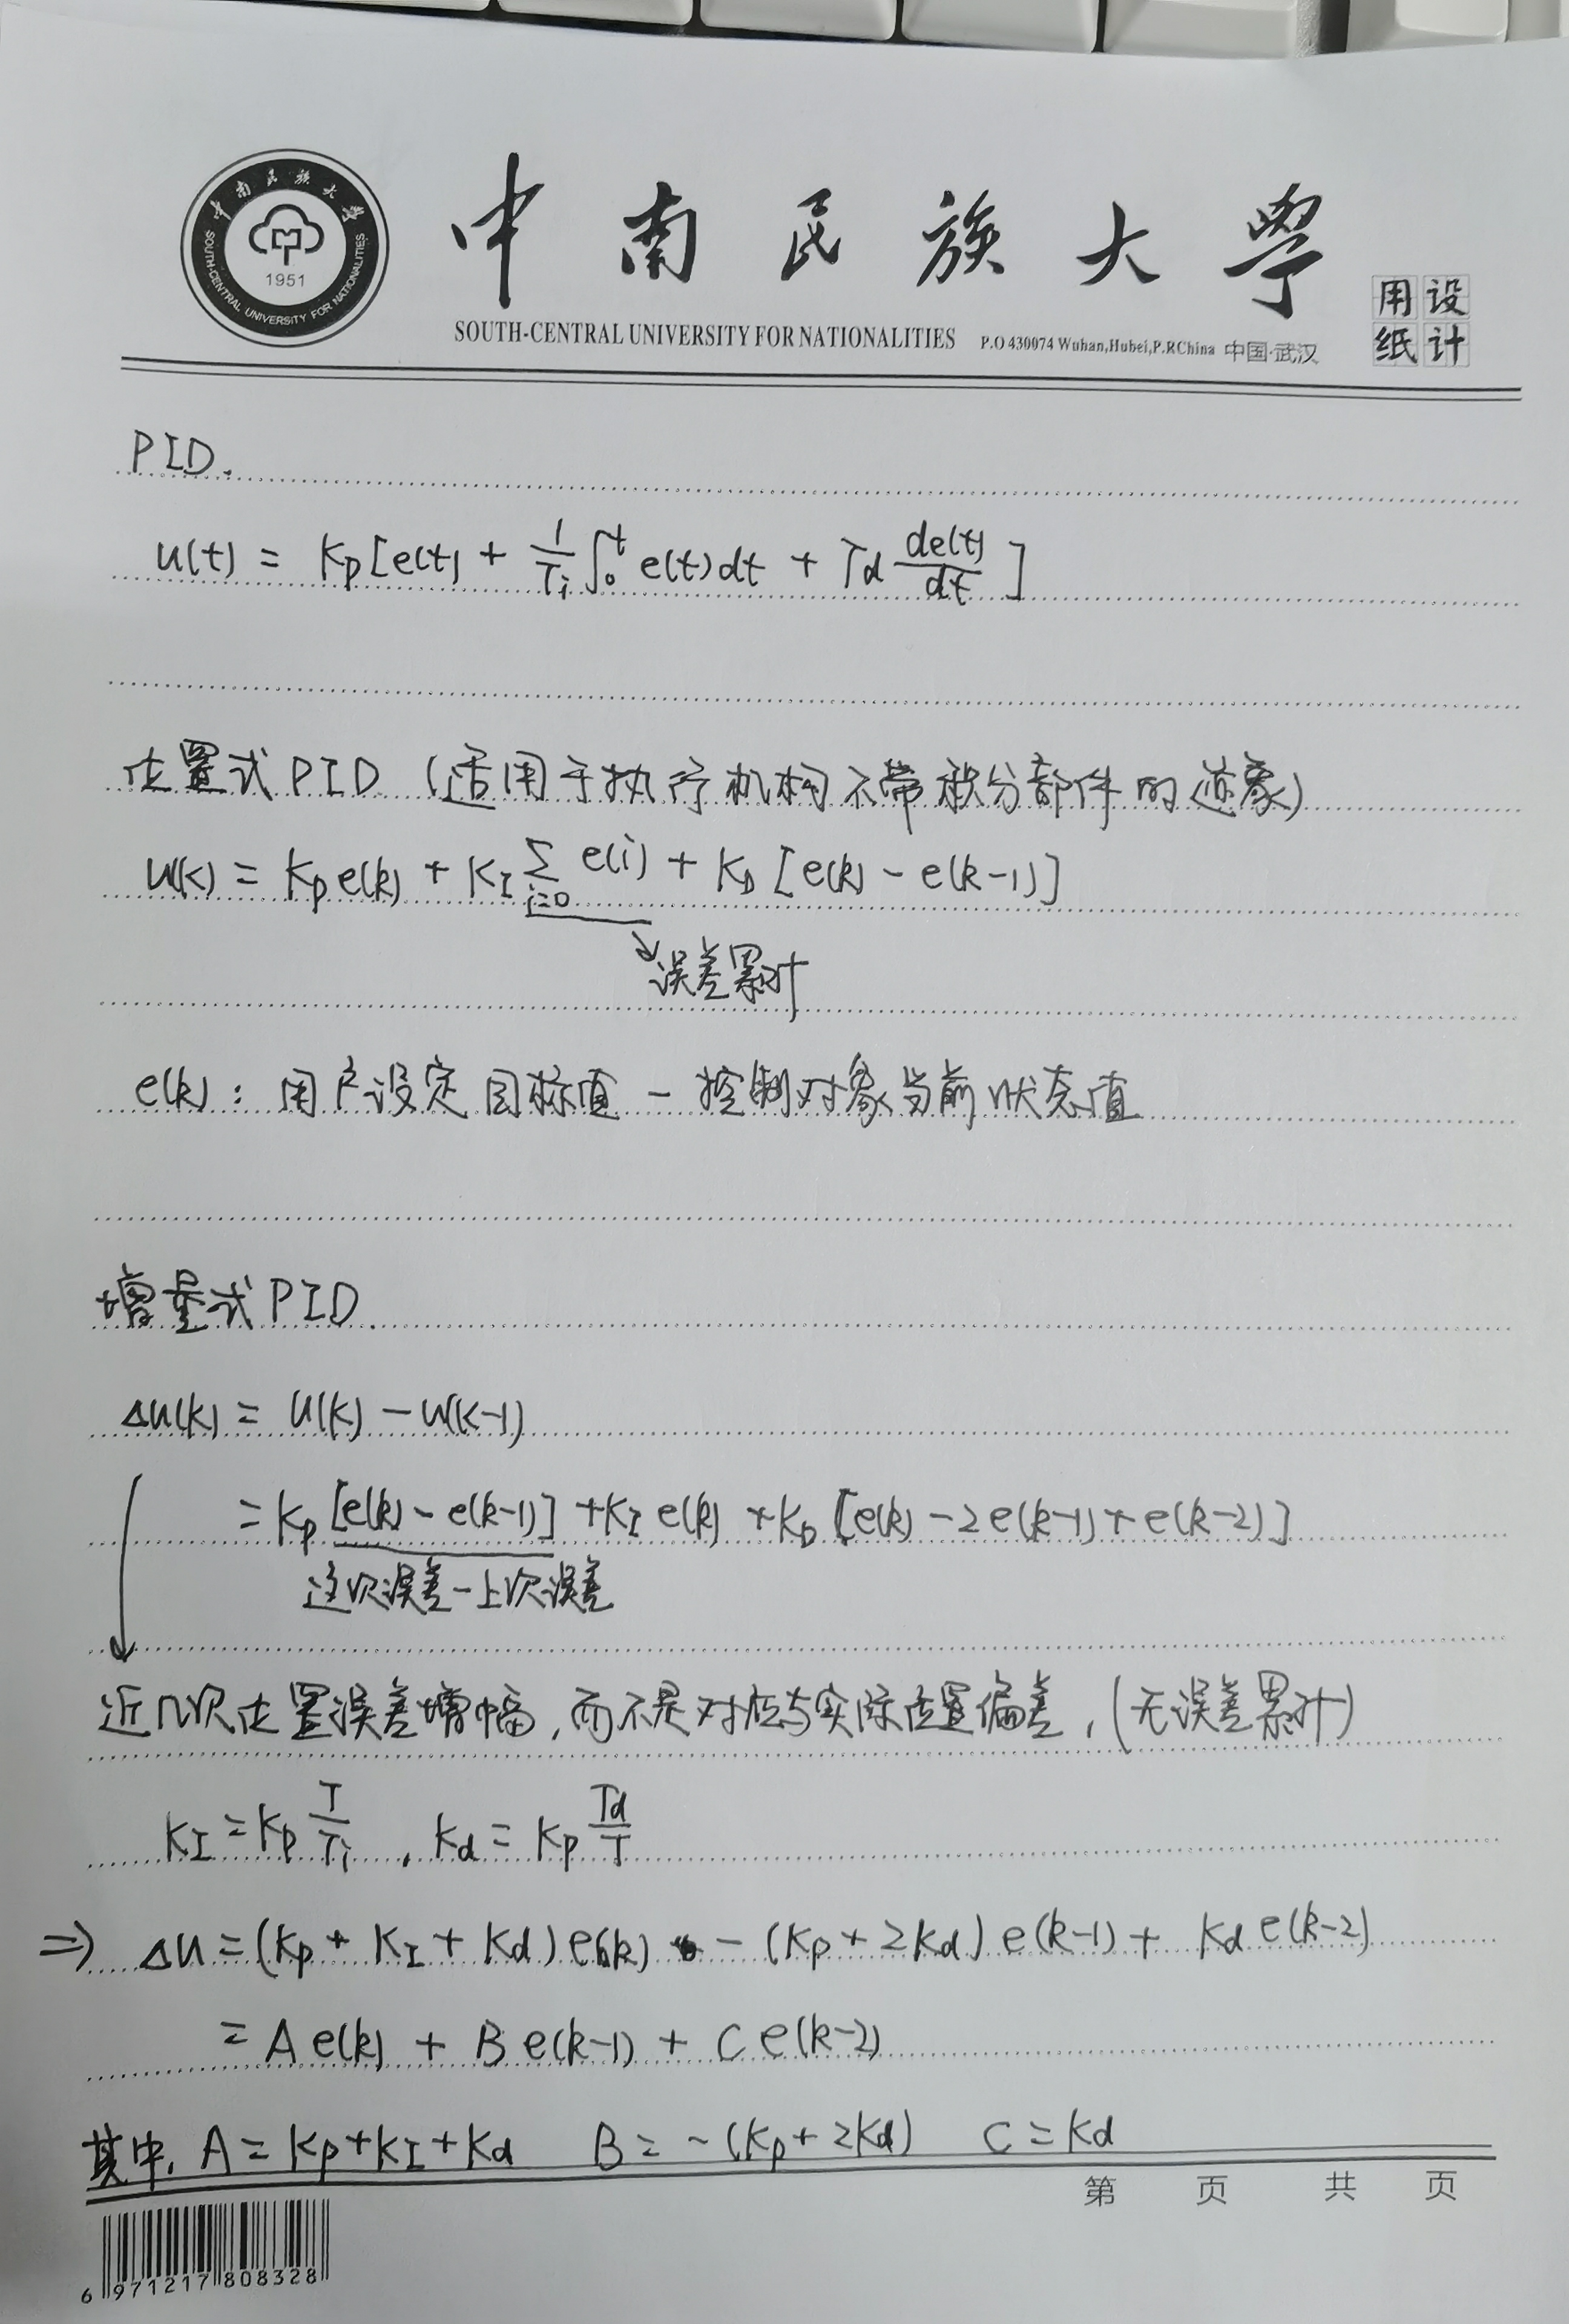 中南民族大学
SOUTH-CENTRAL UNIVERSITY FOR NATIONALITIES
1951
中南民族大學
SOUTH-CENTRAL UNIVERSITY FOR NATIONALITIES P.O 430074 Wuhan,Hubei,P.RChina 中国·武汉
用设
纸计
PID.
u(t) = Kp[e(t) + 1/Ti ∫₀ᵗ e(t)dt + Td de(t)/dt]
位置式PID (适用于执行机构不带积分部件的对象)
u(k) = Kp e(k) + KI Σ i=0 e(i) + KD [e(k) - e(k-1)]
误差累计
e(k): 用户设定目标值 - 控制对象当前状态值
增量式PID
Δu(k) = u(k) - u(k-1)
= Kp [e(k) - e(k-1)] + KI e(k) + KD [e(k) - 2e(k-1) + e(k-2)]
这次误差-上次误差
近几次位置误差增幅,而不是对应与实际位置偏差,(无误差累计)
KI = Kp T/Ti , Kd = Kp Td/T
⇒ Δu = (Kp + KI + Kd) e(k) - (Kp + 2Kd) e(k-1) + Kd e(k-2)
= A e(k) + B e(k-1) + C e(k-2)
其中, A = Kp+KI+Kd B = -(Kp+2Kd) C = Kd
第 页 共 页
6 971217 808328